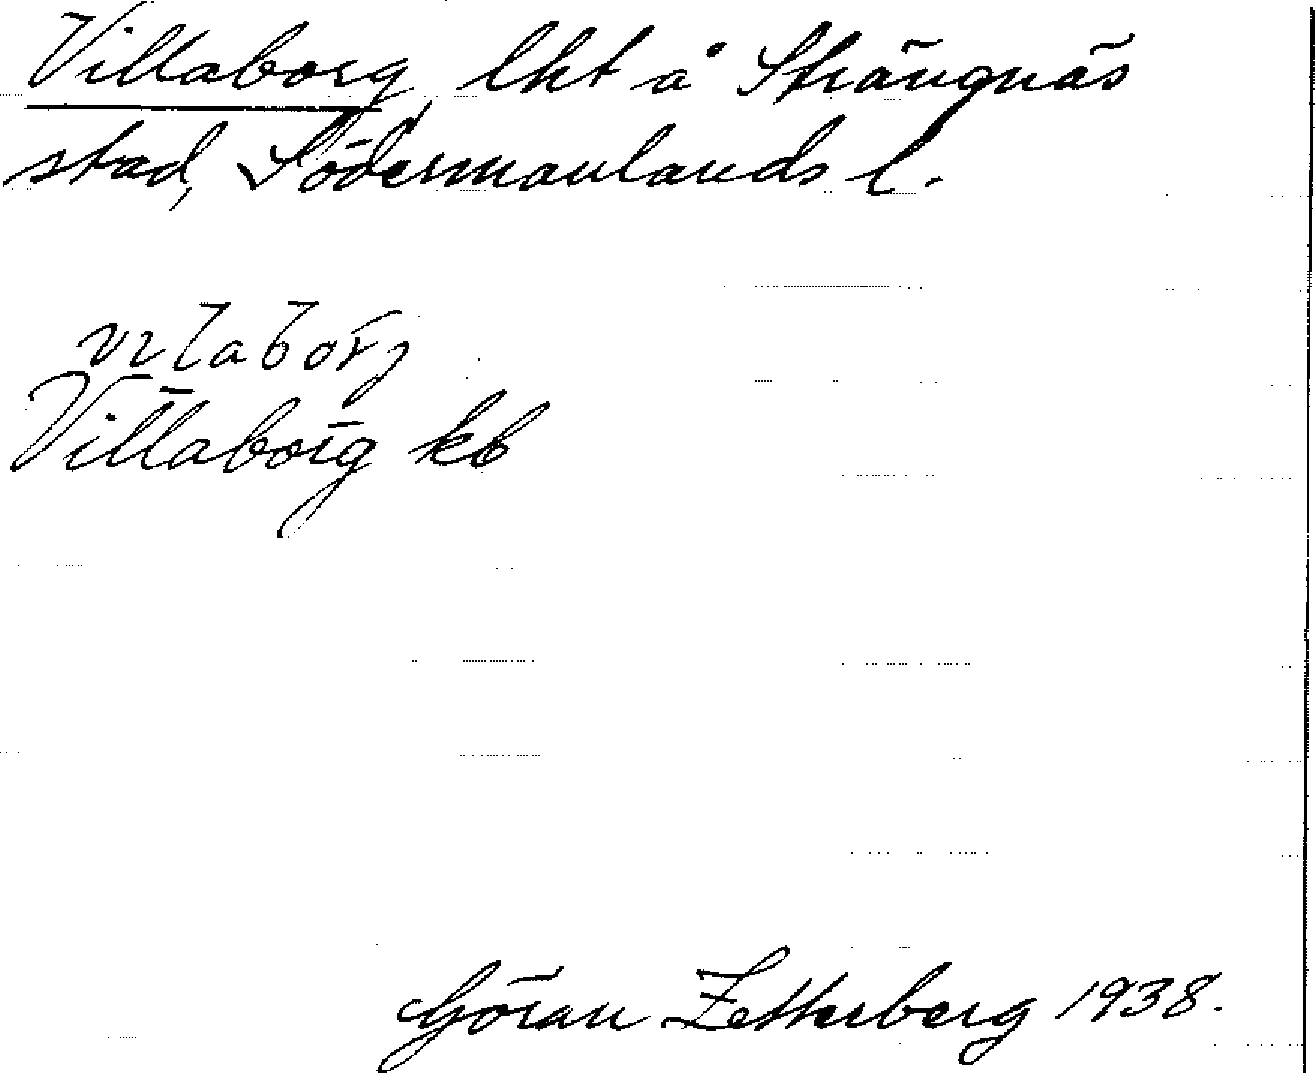 Villaborg, lht å Strängnäs
stad, Södermanlands l.
Villaborg kb
Göran Zetterberg 1938.